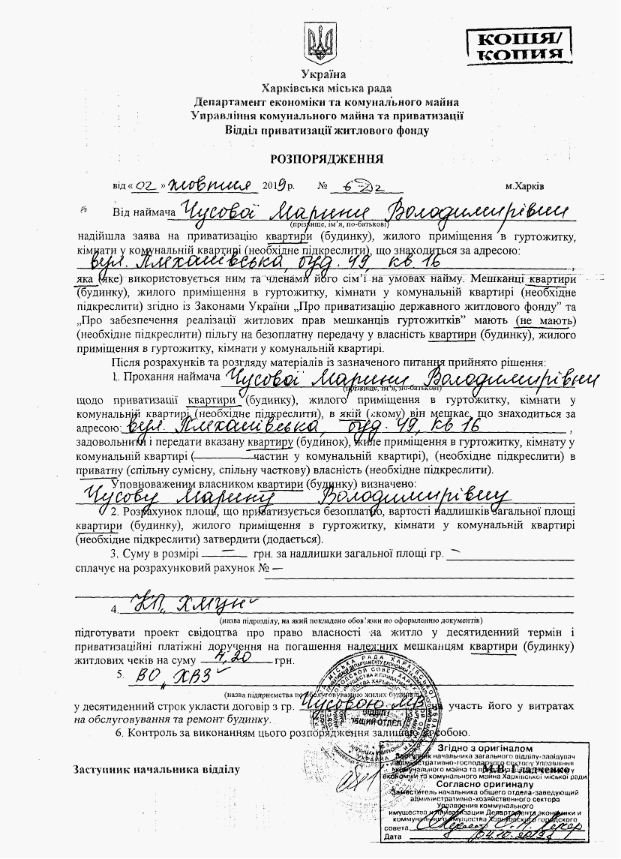 КОПІЯ/
КОПИЯ
Україна
Харківська міська рада
Департамент економіки та комунального майна
Управління комунального майна та приватизації
Відділ приватизації житлового фонду
РОЗПОРЯДЖЕННЯ
від « 02 » жовтня 2019 р. № м.Харків
Від наймача Чусової Марини Володимирівни
(прізвище, ім'я, по-батькові)
надійшла заява на приватизацію квартири (будинку), жилого приміщення в гуртожитку,
кімнати у комунальній квартирі (необхідне підкреслити), що знаходиться за адресою:
вул. Плеханівська, буд. 49, кв. 16 ,
яка (яке) використовується ним та членами його сім'ї на умовах найму. Мешканці квартири
(будинку), жилого приміщення в гуртожитку, кімнати у комунальній квартирі (необхідне
підкреслити) згідно із Законами України „Про приватизацію державного житлового фонду" та
„Про забезпечення реалізації житлових прав мешканців гуртожитків" мають (не мають)
(необхідне підкреслити) пільгу на безоплатну передачу у власність квартири (будинку), жилого
приміщення в гуртожитку, кімнати у комунальній квартирі.
Після розрахунків та розгляду матеріалів із зазначеного питання прийнято рішення:
1. Прохання наймача Чусової Марини Володимирівни
(прізвище, ім'я, по-батькові)
щодо приватизації квартири (будинку), жилого приміщення в гуртожитку, кімнати у
комунальній квартирі (необхідне підкреслити), в якій (якому) він мешкає, що знаходиться за
адресою: вул. Плеханівська, буд. 49, кв 16 ,
задовольнити і передати вказану квартиру (будинок), жиле приміщення в гуртожитку, кімнату у
комунальній квартирі ( частин у комунальній квартирі), (необхідне підкреслити) в
приватну (спільну сумісну, спільну часткову) власність (необхідне підкреслити).
Уповноваженим власником квартири (будинку) визначено:
Чусову Марину Володимирівну
2. Розрахунок площі, що приватизується безоплатно, вартості надлишків загальної площі
квартири (будинку), жилого приміщення в гуртожитку, кімнати у комунальній квартирі
(необхідне підкреслити) затвердити (додається).
3. Суму в розмірі — грн. за надлишки загальної площі гр. —
сплачує на розрахунковий рахунок № —
4. КП „ХМЦН"
(назва підрозділу, на який покладено обов'язки по оформленню документів)
підготувати проект свідоцтва про право власності на житло у десятиденний термін і
приватизаційні платіжні доручення на погашення належних мешканцям квартири (будинку)
житлових чеків на суму 4.20 грн.
5. ВО „ХВЗ"
(назва підприємства по обслуговуванню жилих будинків)
у десятиденний строк укласти договір з гр. Чусовою М.В. на участь його у витратах
на обслуговування та ремонт будинку.
6. Контроль за виконанням цього розпорядження залишаю за собою.
Заступник начальника відділу М.В. Гладченко
Згідно з оригіналом
Заступник начальника загального відділу-завідувач
адміністративно-господарчого сектору Управління
комунального майна та приватизації Департаменту
економіки та комунального майна Харківської міської ради
Согласно оригиналу
Заместитель начальника общего отдела-заведующий
административно-хозяйственного сектора
Управления коммунального
имущества и приватизации Департамента экономики и
коммунального имущества Харьковского городского
совета
Дата